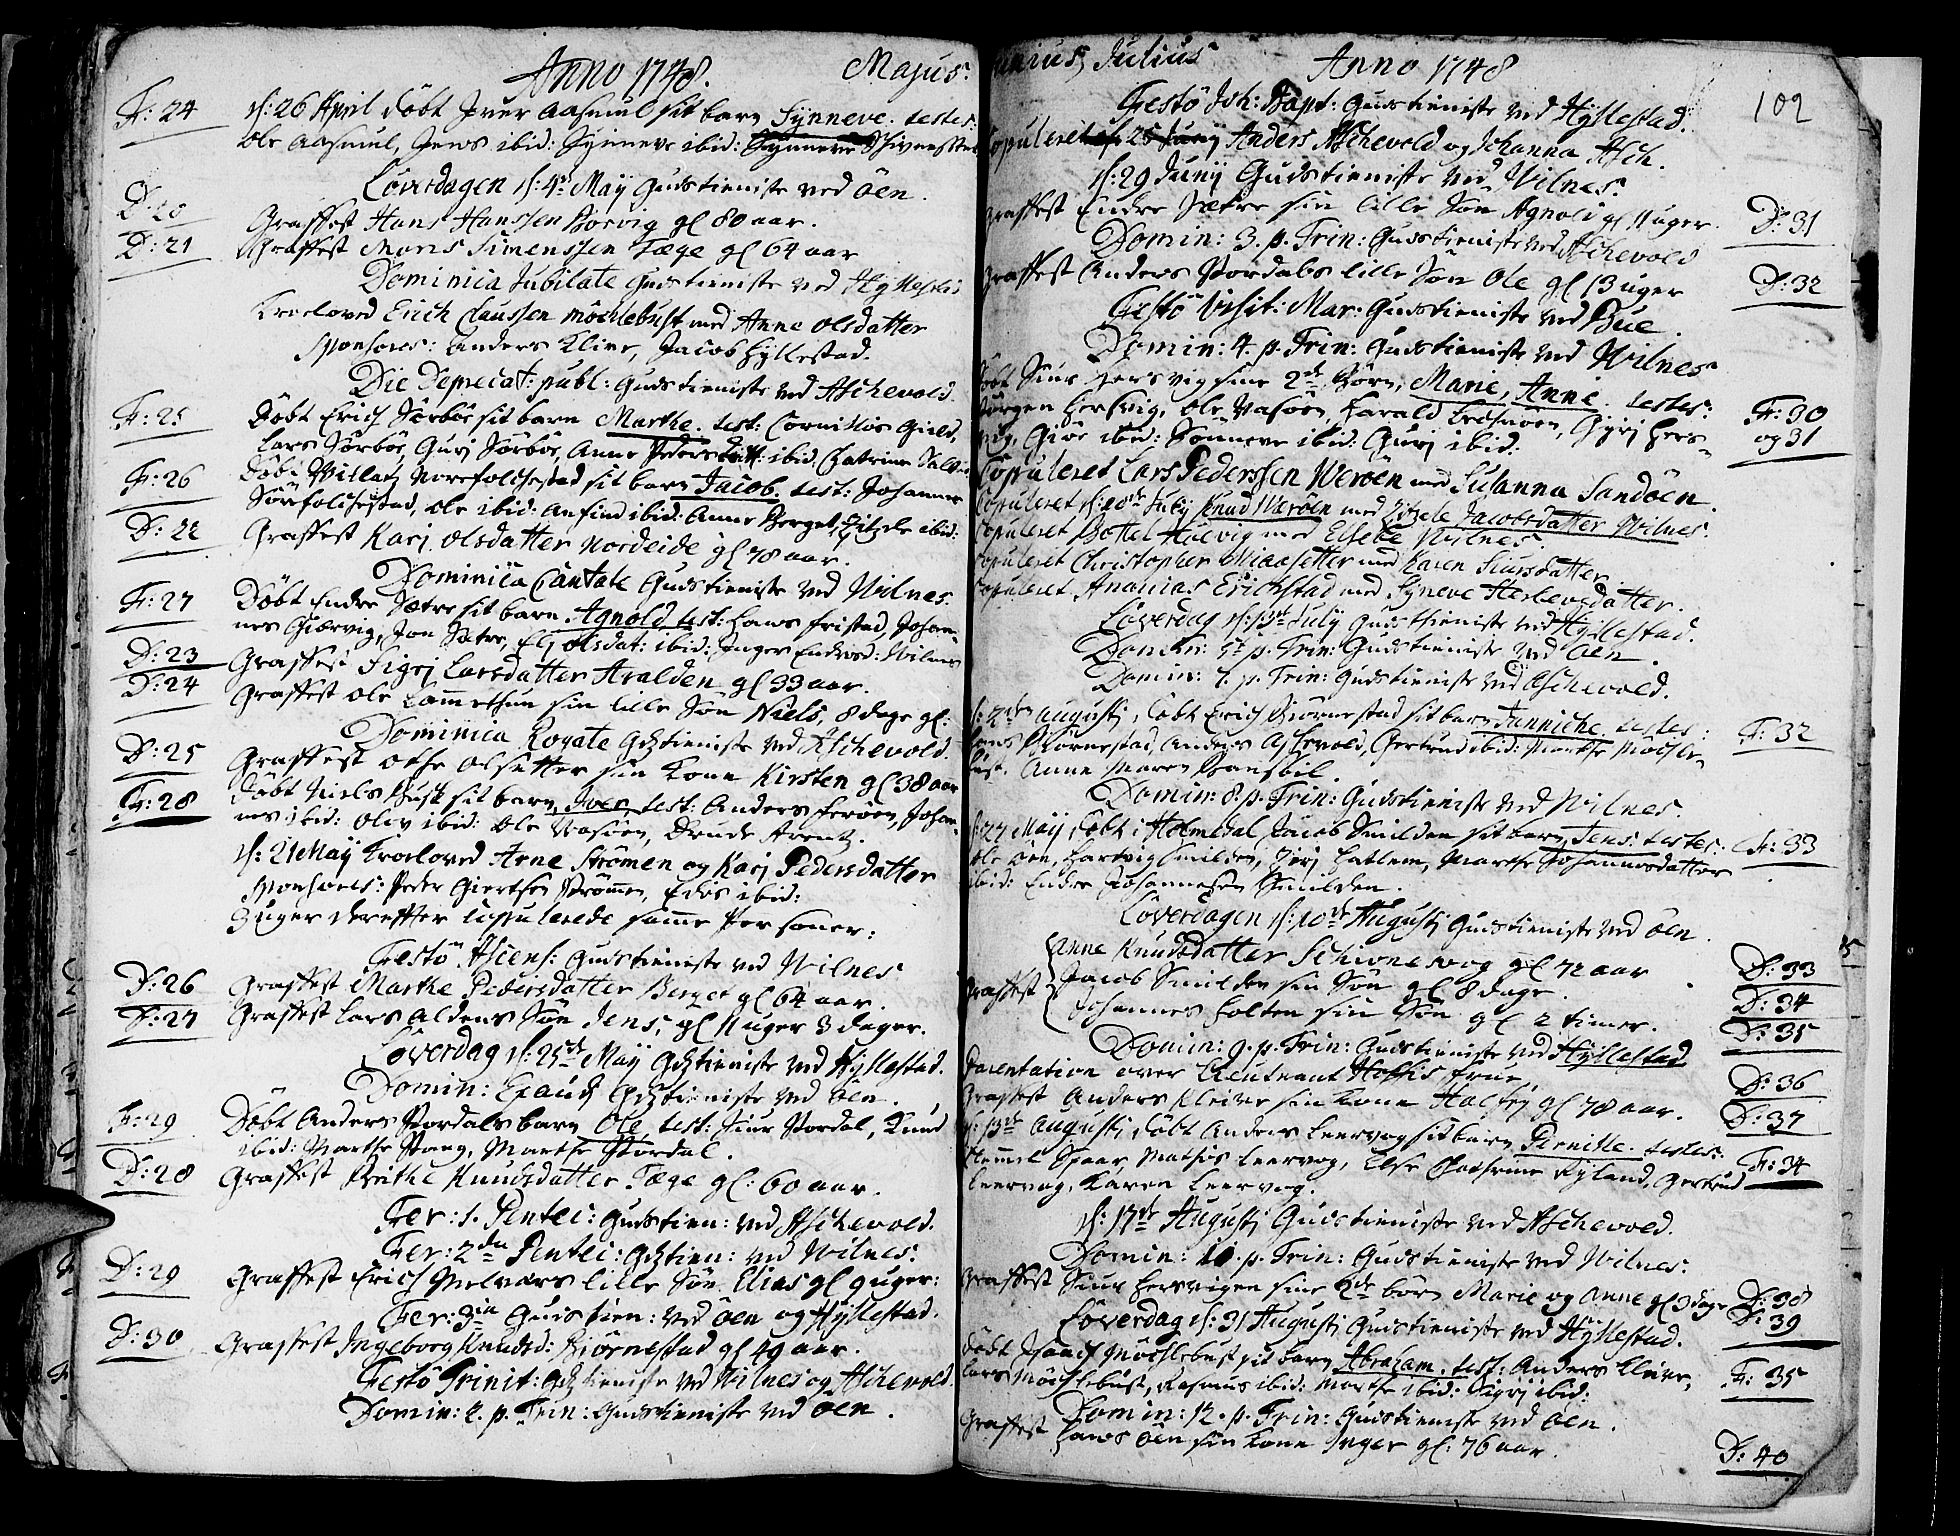 Anno 1748. Majus.
F: 24 d: 26 April döbt Iver Aasmul sit barn Synneve. testes:
Ole Aasmul, Jens ibid: Synneve ibid:
Löverdagen d: 4de Maÿ Gudstieniste ved Öen.
D: 20 Graffest Hans Hanssen Boevig gl 80 aar.
D: 21 Graffest Mons Simenssen Tæge gl 64 aar
Dominica Jubilate Gudstieniste ved Hÿllestad
Troloved Erich Claussen Möchlebust med Anne Olsdatter
sponsores: Anders Klive, Jacob Hyllestad.
Die Deprecat: publ: Gudstieniste ved Aschevold.
F: 25 Döbt Erich Sörböe sit barn Marthe. test: Cornilios Gield,
Lars Sörböe, Gurj Sörböe, Anne Pedersdatt: ibid, Chatrine
F: 26 Döbt Nordfolchestad sit barn Jacob. test: Johannes
Sörfolchestad, Ole ibid: Anfind ibid: Anne Berget, Sitzele ibid:
D: 22 Graffest Karj Olsdatter Nordeide gl 78 aar.
Dominica Cantate Gudstieniste ved Wilnes.
F: 27 Döbt Endre Sætre sit barn Agnold. test: Hans Fristad, Johan-
nes Giærvig, Jon Sætre, Elj Olsdat: ibid: Inger Endresd: Wilnes
D: 23 Graffest Sigrj Larsdatter Aralden gl 33 aar.
D: 24 Graffest Ole Lammetun sin lille Sön Niels, 8 dage gl:
Dominica Rogate Gtztieniste ved Aschevold.
D: 25 Graffest Othe Olsetter sin Kone Kirsten gl 38 aar
F: 28 Döbt Niels Bust sit barn Iver, test: Anders Feröen, Johan-
nes ibid: Oliv ibid: Ole Vasöen, Drude Arentz.
d: 21 Maÿ troloved Arne Strömen og Karj Pedersdatter
sponsores: Peder Giertsen Strömen, ibid:
3 uger dereffter copulerede samme Personer:
Festö Ascens: Gudstieniste ved Wilnes
D: 26 Graffest Marthe Pedersdatter Berget gl 64 aar.
D: 27 Graffest Lars Aldens Sön Jens, gl 11 uger 3 dager.
Löverdag d: 25de Maÿ Gtztieniste ved Hÿllestad.
Domin: Exaudi Gtztieniste ved Öen.
F: 29 Döbt Anders Stordals barn Ole. test: Siur Stordal, Knud
ibid: Marthe Stang, Marthe Stordal.
D: 28 Graffest Brithe Knudsdatter Tæge gl: 60 aar.
Fer: 1. Pentec: Gudstien: ved Aschevold.
Fer: 2da Pentec: Gtztien: ved Wilnes:
D: 29 Graffest Erich Melværs lille Sön Elias gl 9 uger:
Fer: 3ia Gudstien: ved Öen og Hÿllestad.
D: 30 Graffest Ingeborg Knudsd: Biörnestad gl 49 aar.
Festö Trinit: Gtztieniste ved Wilnes og Aschevold.
Domin: 2. p. Trin: Gudstieniste ved Öen.
Junius, Julius Anno 1748 102
Festö Joh: Bapt: Gudstieniste ved Hÿllestad.
Copuleret Anders Aschevold og Johanna Asch.
d: 29 Junij Gudstieniste ved Wilnes.
Graffest Endre Sætre sin lille Sön Agnold gl 11 uger. D: 31
Domin: 3. p. Trin: Gudstieniste ved Aschevold
Graffest Anders Stordals lille Sön Ole gl 13 uger D: 32
Festö Visit: Mar: Gudstieniste ved Bue.
Domin: 4. p. Trin: Gudstieniste ved Wilnes
Döbt Siur Hersvig sine 2de börn, Marie, Anne. testes: F: 30
Jörgen Hersvig, Ole Vasöen, Harald Ledsmöen, Gurj Hers- og 31
vig, Giöe ibid: Sönneve ibid: Gurj ibid.
Copuleret Lars Pederssen Weröen med Susanna Sandöen.
Copuleret d: 10de July Knud Weröen med Sitzele Jacobsdatter Wilnes.
Copuleret Bottel Hoevig med Elsebe Wilnes.
Copuleret Christopher Miaasetter med Karen Siursdatter.
Copuleret Ananias Erichstad med Syneve Herlevsdatter.
Löverdag d: 13de July Gudstieniste ved Hÿllestad.
Domin: 5. p. Trin: Gudstieniste ved Öen.
Domin: 7. p. Trin: Gudstieniste ved Aschevold.
d: 2den Augustj, döbt Erich Biörnestad sit barn Janniche. testes: F: 32
Hans Biörnestad, Anders Aschevold, Gertrud ibid: Marthe Möchle-
bust, Anne Maren
Domin: 8. p. Trin: Gudstieniste ved Wilnes.
d: 27 Maÿ, döbt i Holmedal, Jacob Smilden sit barn Jens. testes: F: 33
Ole Öen, Hartvig Smilden, Marthe Johannesdatter
ibid: Endre Johannesen Smilden.
Löverdagen d: 10de Augustj Gudstieniste ved Öen.
Anne Knudsdatter Schivenesvog gl 72 aar D: 33
Graffest Jacob Smilden sin Sön gl 8 dage. D: 34
Johannes Holten sin Sön gl 2 timer. D: 35
Domin: 9. p. Trin: Gudstieniste ved Hÿllestad
Parentation over Lieutnant Hoffis frue, D: 36
Graffest Anders Kleive sin Kone Halfrj gl 78 aar. D: 37
d: 13de Augustj, döbt Anders Leervog sit barn Pernille. testes:
Clemmet Spaar, Mathis Leervog, Else Chatrine Ryland, Gertrud F: 34
Leervog, Karen Leervog.
d: 17de Augustj Gudstieniste ved Aschevold.
Domin: 10. p. Trin: Gudstieniste ved Wilnes:
Graffest Siur Hersvigen sine 2de börn Marie og Anne gl 3 dage D: 38
Löverdag d: 31 Augustj Gudstieniste ved Hÿllestad. D: 39
Döbt Isaach Möchlebust sit barn Abraham. test: Anders Kleive,
Lars Möchlebust, Rasmus ibid: Marthe ibid: Sigrj ibid: F: 35
Domin: 12. p. Trin: Gudstieniste ved Öen.
Graffest Hans Öen sin Kone Inger gl: 76 aar. D: 40